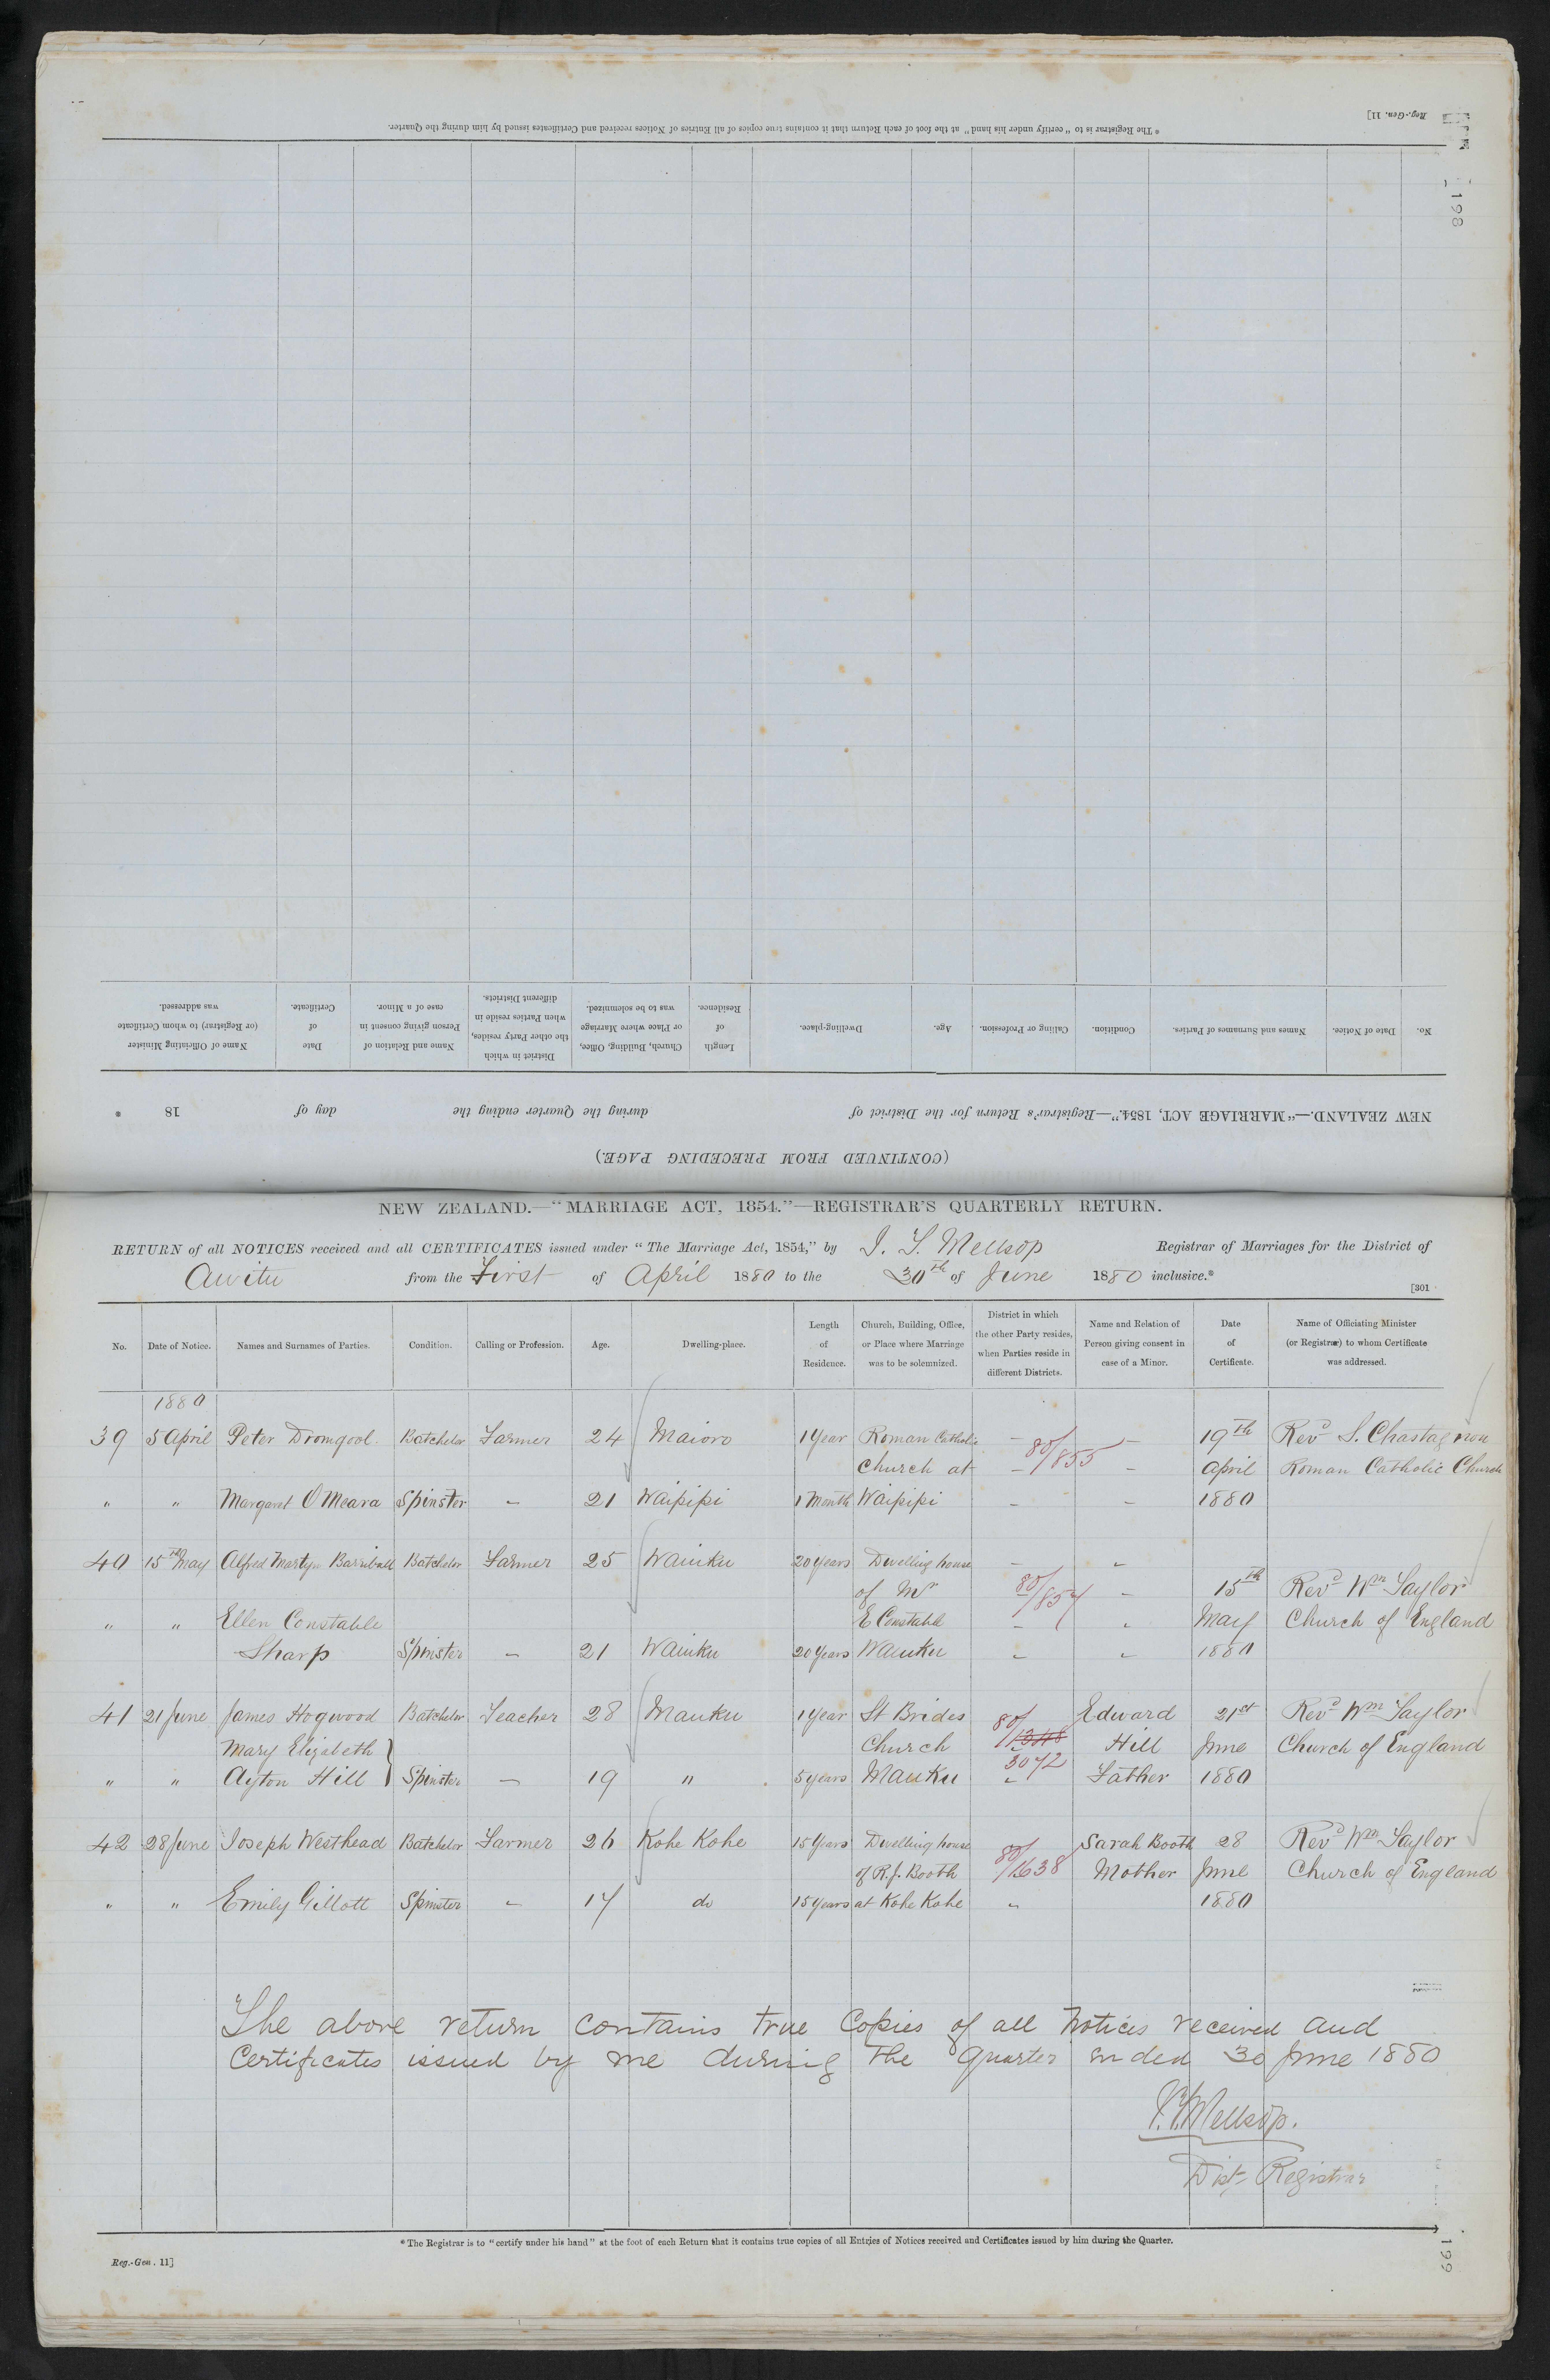 * The Registrar is to "certify under his hand" at the foot of each Return that it contains true copies of all Entries of Notices received and Certificates issued by him during the Quarter.
Reg.-Gen. 11]
198
(CONTINUED FROM PRECEDING PAGE.)
NEW ZEALAND.—"MARRIAGE ACT, 1854."—Registrar's Return for the District of during the Quarter ending the day of 18 *
No. Date of Notice. Names and Surnames of Parties. Condition. Calling or Profession. Age. Dwelling-place. Length of Residence. Church, Building, Office, or Place where Marriage was to be solemnized. District in which the other Party resides, when Parties reside in different Districts. Name and Relation of Person giving consent in case of a Minor. Date of Certificate. Name of Officiating Minister (or Registrar) to whom Certificate was addressed.
NEW ZEALAND.—"MARRIAGE ACT, 1854."—REGISTRAR'S QUARTERLY RETURN.
RETURN of all NOTICES received and all CERTIFICATES issued under "The Marriage Act, 1854," by J. T. Mellsop Registrar of Marriages for the District of
Awitu from the First of April 1880 to the 30th of June 1880 inclusive.*
[301
No. Date of Notice. Names and Surnames of Parties. Condition. Calling or Profession. Age. Dwelling-place. Length of Residence. Church, Building, Office, or Place where Marriage was to be solemnized. District in which the other Party resides, when Parties reside in different Districts. Name and Relation of Person giving consent in case of a Minor. Date of Certificate. Name of Officiating Minister (or Registrar) to whom Certificate was addressed.
1880
39 5 April Peter Dromgool Batchelor Farmer 24 Maioro 1 Year Roman Catholic — 80/855 — 19th Revd S. Chastagnon
Church at — — April Roman Catholic Church
" " Margaret O'Meara Spinster — 21 Waipipi 1 Month Waipipi — — 1880
40 15th May Alfred Martyn Barriball Batchelor Farmer 25 Waiuku 20 years Dwelling house — "
of Mr 80/854 — 15th Revd Wm Taylor
" " Ellen Constable E Constable — " May Church of England
Sharp Spinster — 21 Waiuku 20 Years Waiuku " " 1880
41 21 June James Hogwood Batchelor Teacher 28 Mauku 1 year St Brides 80/ Edward 21st Revd Wm Taylor
Mary Elizabeth } Church 1348 Hill June Church of England
" " Ayton Hill } Spinster — 19 " 5 years Mauku 3072 " Father 1880
42 28 June Joseph Westhead Batchelor Farmer 26 Kohe Kohe 15 Years Dwelling house Sarah Booth 28 Revd Wm Taylor
of R.J. Booth 80/1638 Mother June Church of England
" " Emily Gillott Spinster — 17 do 15 Years at Kohe Kohe " 1880
The above return contains true Copies of all Notices received and
Certificates issued by me during the Quarter ended 30 June 1880
J.T. Mellsop.
Dist. Registrar
* The Registrar is to "certify under his hand" at the foot of each Return that it contains true copies of all Entries of Notices received and Certificates issued by him during the Quarter.
Reg.-Gen. 11]
199